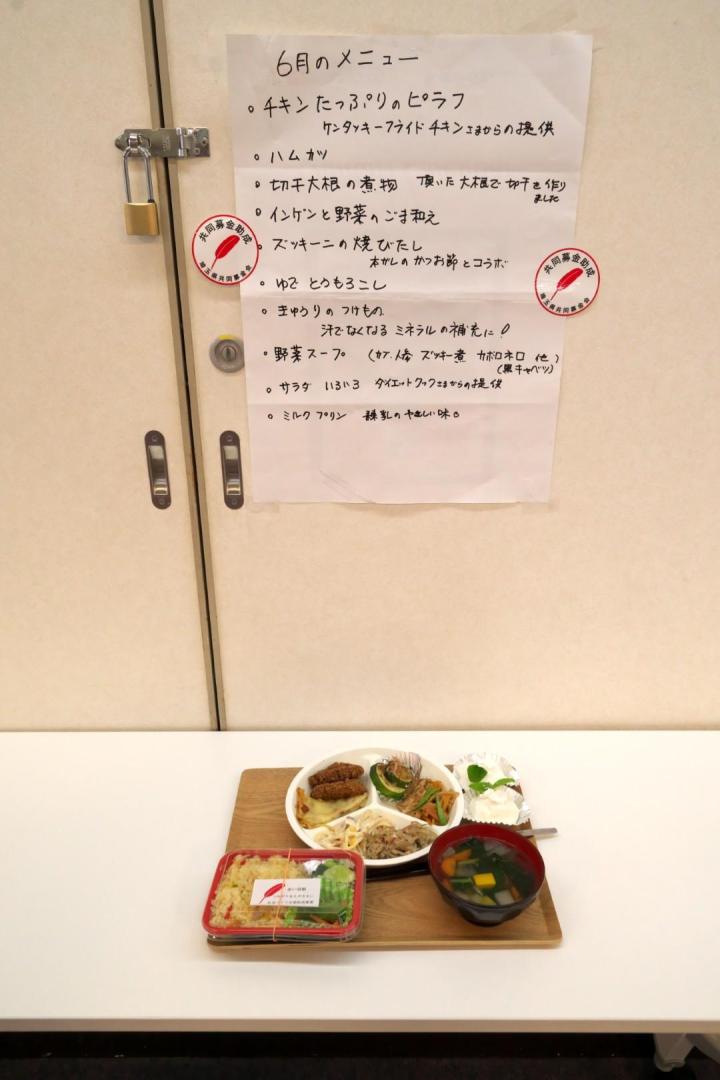 6月のメニュー
。チキンたっぷりのピラフ
ケンタッキーフライドチキンさまからの提供
。ハムカツ
。切干大根の煮物 頂いた大根で切干を作り
ました
。インゲンと野菜のごま和え
。ズッキーニの焼びたし
本がしのかつお節とコラボ
。ゆでとうもろこし
。きゅうりのつけもの
汗でなくなるミネラルの補充に!
。野菜スープ (カブ.人参 ズッキー煮 カボロネロ 他)
(黒キャベツ)
。サラダ いろいろ ダイエットクックさまからの提供
。ミルクプリン 練乳のやさしい味。
共同募金助成
埼玉県共同募金会
共同募金助成
埼玉県共同募金会
赤い羽根